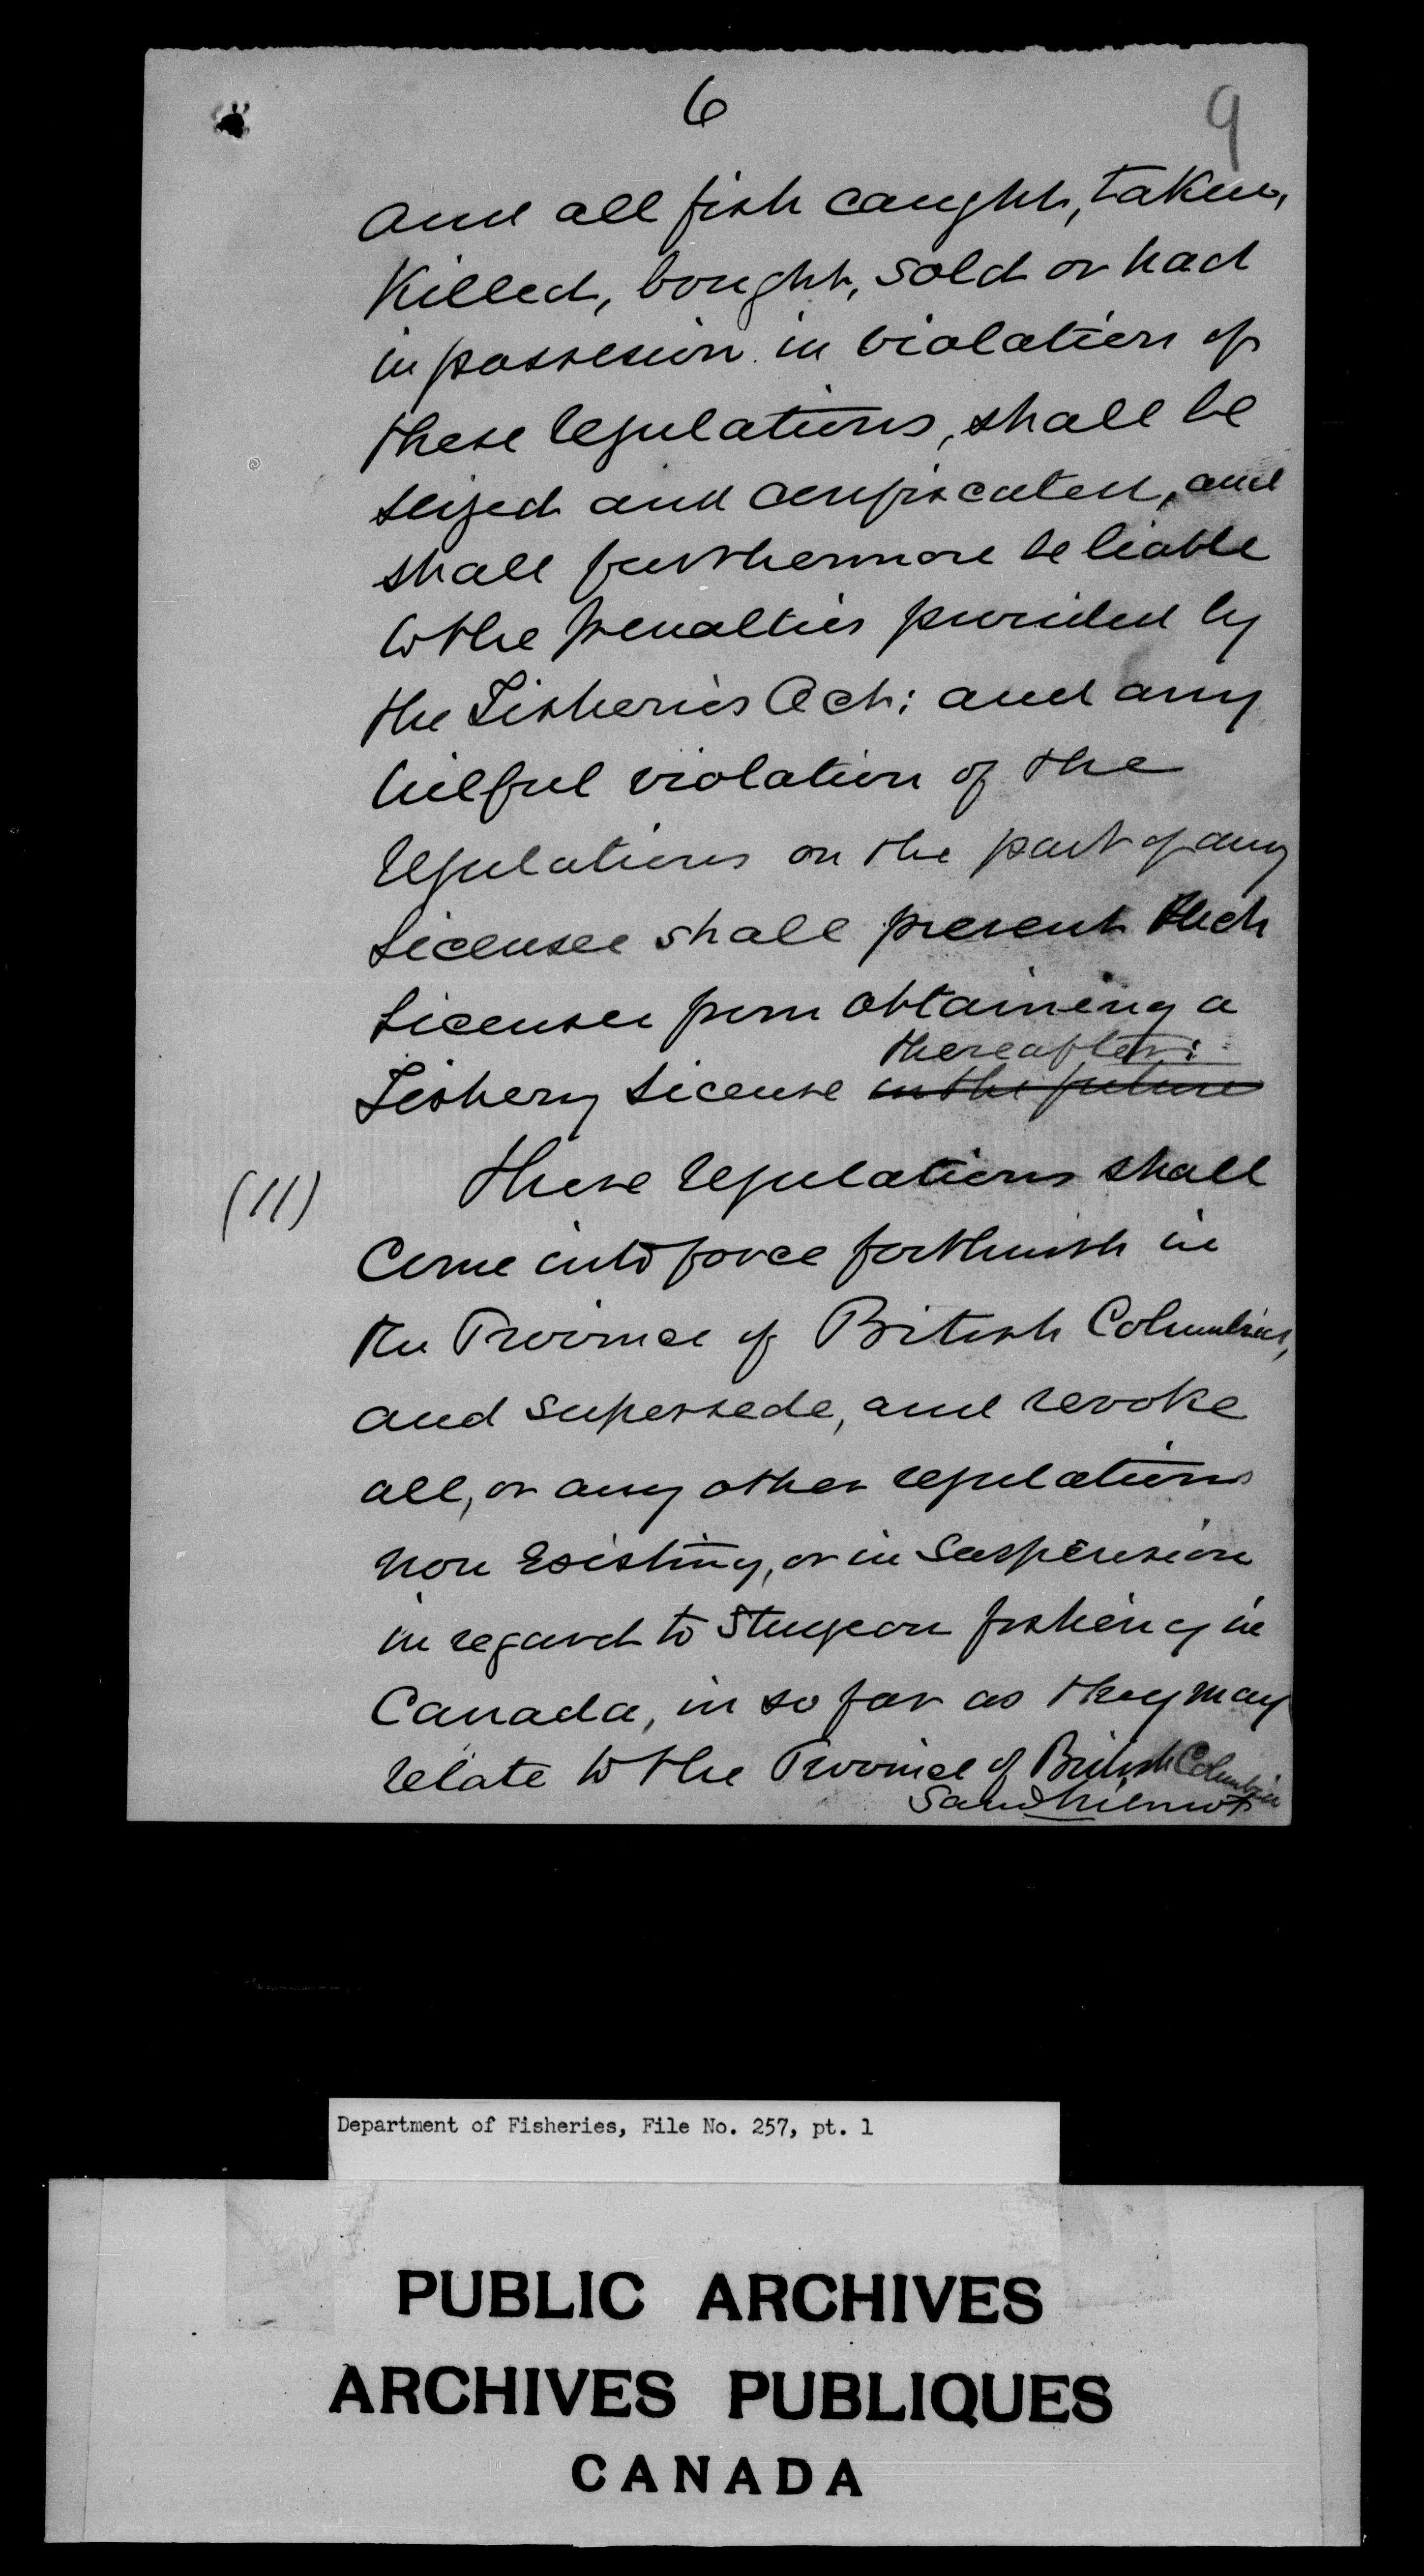 6
9
and all fish caught, taken,
Killed, bought, sold or had
in possesion in violation of
these regulations, shall be
seized and confiscated, and
shall furthermore be liable
to the penalties provided by
the Fisheries Act; and any
wilful violation of the
regulations on the part of any
Licensee shall prevent such
Licensee from obtaining a
thereafter:
Fishery License in the future
(11) These regulations shall
Come into force forthwith in
the Province of British Columbia,
and supersede, and revoke
all, or any other regulations
now Existing, or in Suspension
in regard to Sturgeon fishing in
Canada, in so far as they may
relate to the Province of British Columbia
Saml Wilmot
Department of Fisheries, File No. 257, pt. 1
PUBLIC ARCHIVES
ARCHIVES PUBLIQUES
CANADA